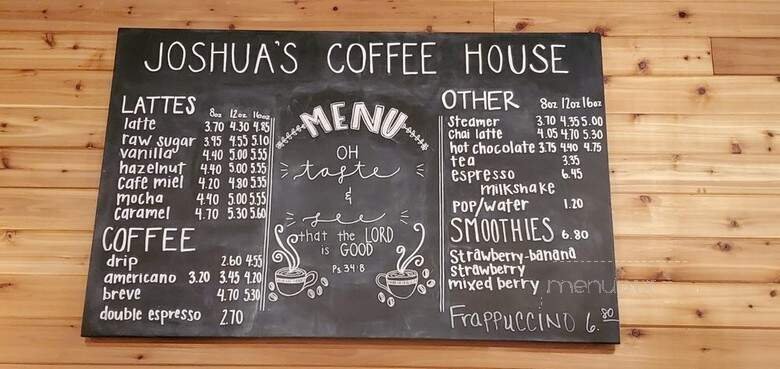 JOSHUA'S COFFEE HOUSE
LATTES 8oz 12oz 16oz
latte 3.70 4.30 4.85
raw sugar 3.95 4.55 5.10
vanilla 4.40 5.00 5.55
hazelnut 4.40 5.00 5.55
cafe miel 4.20 4.80 5.35
mocha 4.40 5.00 5.55
caramel 4.70 5.30 5.60
COFFEE
drip 2.60 4.55
americano 3.20 3.45 4.20
breve 4.70 5.30
double espresso 2.70
MENU
OH
taste
&
see
that the LORD
is GOOD
Ps. 34:8
OTHER 8oz 12oz 16oz
steamer 3.70 4.35 5.00
chai latte 4.05 4.70 5.30
hot chocolate 3.75 4.40 4.75
tea 3.35
espresso 6.45
milkshake
pop/water 1.20
SMOOTHIES 6.80
strawberry-banana
strawberry
mixed berry
FRAPPUCCINO 6.80